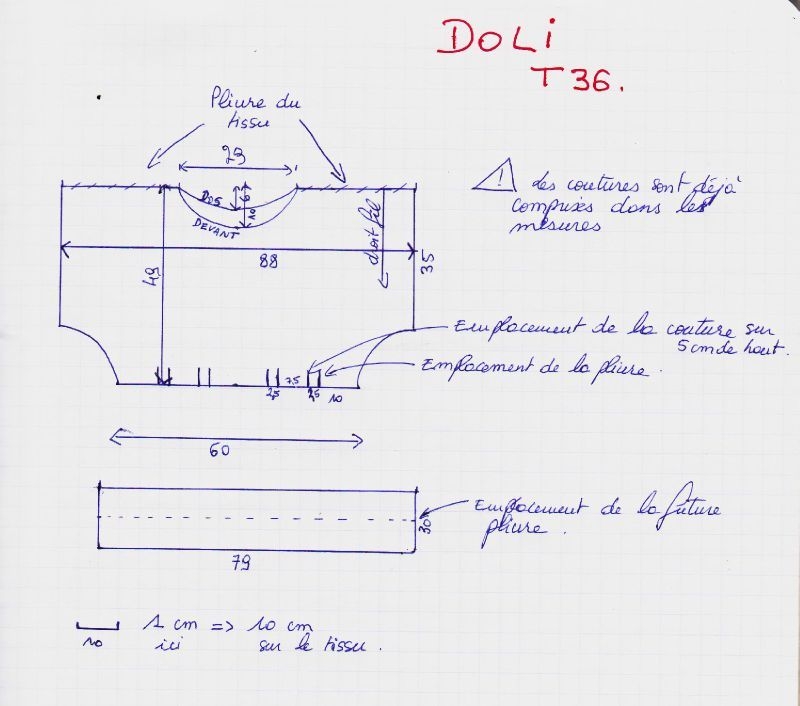 DOLI
T36.
Pliure du
tissu
23
DOS
6
10
DEVANT
droit fil
⚠ les coutures sont déjà
comprises dans les
mesures
88
49
35
Emplacement de la couture sur
5 cm de haut.
Emplacement de la pliure.
2,5
7,5
2,5
10
60
Emplacement de la future
pliure.
30
79
1 cm => 10 cm
10
ici
sur le tissu.